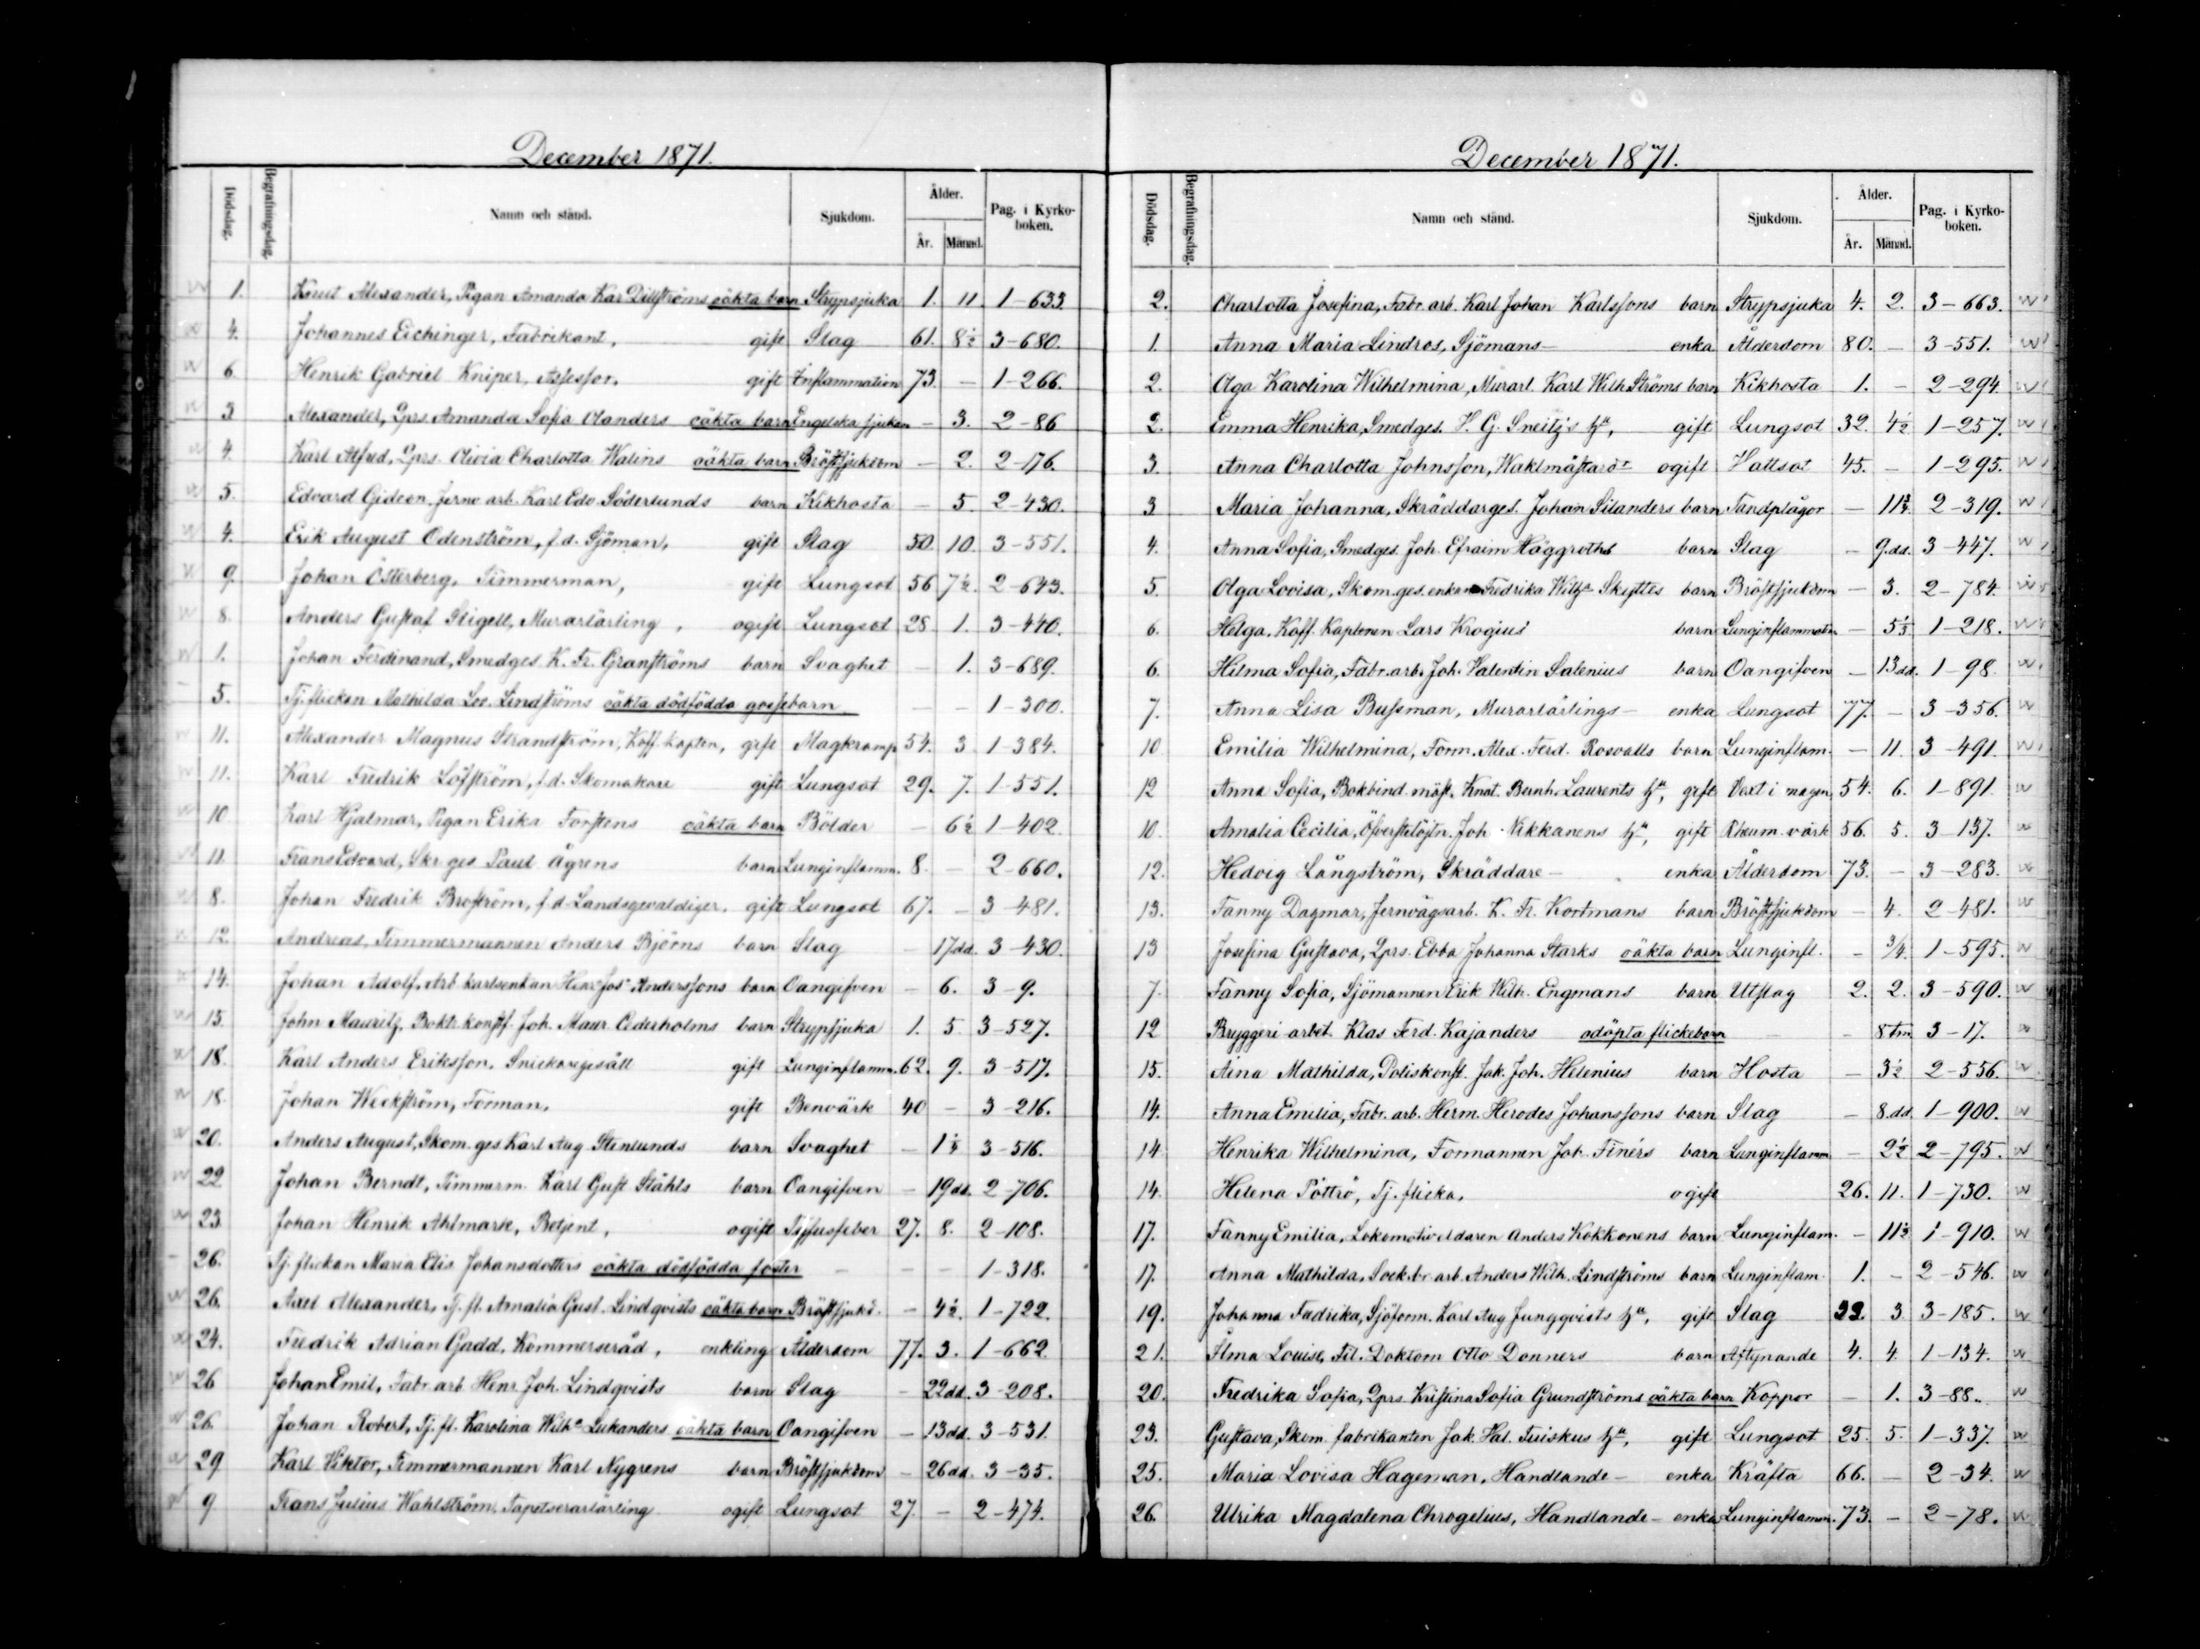 December 1871.
Dödsdag. Begrafningsdag. Namn och stånd. Sjukdom. Ålder. År. Månad. Pag. i Kyrko-boken.
1. Knut Alexander, Pigan Amanda Kar. Dillströms oäkta barn Strypsjuka 1. 11. 1-633
4. Johannes Eichinger, Fabrikant, gift Slag 61. 8½ 3-680.
6. Henrik Gabriel Kniper, Assessor, gift Inflammation 73. — 1-266.
3 Alexander, Lprs. Amanda Sofia Olanders oäkta barn Engelska sjukan — 3. 2-86
4. Karl Alfred, Lprs. Olivia Charlotta Walins oäkta barn Bröstsjukdom — 2. 2-176.
5. Edvard Gideon, Jernv. arb. Karl Edv. Söderlunds barn Kikhosta — 5. 2-430.
4. Erik August Odenström, f.d. Sjöman, gift Slag 50. 10. 3-551.
9. Johan Österberg, Timmerman, gift Lungsot 56 7½ 2-643.
8. Anders Gustaf Stigell, Murarlärling, ogift Lungsot 28 1. 3-440.
1. Johan Ferdinand, Smedges. K. Fr. Granströms barn Svaghet — 1. 3-689.
5. Tj. flickan Mathilda Lov. Lindströms oäkta dödfödda gossebarn — — 1-300.
11. Alexander Magnus Strandström, Koff. kapten, gift Magkramp 54. 3 1-384.
11. Karl Fredrik Löfström, f.d. Skomakare gift Lungsot 29. 7. 1-551.
10. Karl Hjalmar, Pigan Erika Forstens oäkta barn Bölder — 6½ 1-402.
11. Frans Edvard, Skr. ges. Paul Ågrens barn Lunginflamm. 8. — 2-660.
8. Johan Fredrik Broström, f.d. Landsgevaldiger, gift Lungsot 67. — 3-481.
12. Andreas, Timmermannen Anders Björns barn Slag — 17 dd. 3-430.
14. Johan Adolf, Arb. karlsenkan Anderssons barn Oangifven — 6. 3-9.
15. John Mauritz, Bokt. konstf. Joh. Maur. Cederholms barn Strypsjuka 1. 5 3-527.
18. Karl Anders Eriksson, Snickaregesäll gift Lunginflamm. 62. 9. 3-517.
18. Johan Weckström, Forman, gift Benvärk 40 — 3-216.
20. Anders August, Skom. ges Karl Aug Stenlunds barn Svaghet — 1½ 3-516.
22 Johan Berndt, Timmerm. Karl Gust Ståhls barn Oangifven — 19 dd. 2-706.
23. Johan Henrik Ahlmark, Betjent, ogift Tyfusfeber 27. 8. 2-108.
26. Tj. flickan Maria Elis. Johansdotters oäkta dödfödda foster — — — 1-318.
26. Axel Alexander, Tj. fl. Amalia Gust. Lindqvists oäkta barn Bröstsjukd. — 4½ 1-722.
24. Fredrik Adrian Gadd, Kommerseråd, enkling Ålderdom 77. 3. 1-662.
26 Johan Emil, Fabr. arb. Henr. Joh. Lindqvists barn Slag — 22 dd. 3-208.
26 Johan Robert, Tj. fl. Karolina Wilh:a Lukanders oäkta barn Oangifven — 13 dd. 3-531.
29 Karl Viktor, Timmermannen Karl Nygrens barn Bröstsjukdom — 26 dd. 3-35.
9 Frans Julius Wahlström, Tapetserarlärling ogift Lungsot 27. — 2-474.
December 1871.
Dödsdag. Begrafningsdag. Namn och stånd. Sjukdom. Ålder. År. Månad. Pag. i Kyrko-boken.
2. Charlotta Josefina, Fabr. arb. Karl Johan Karlssons barn Strypsjuka 4. 2. 3-663.
1. Anna Maria Lindros, Sjömans- enka Ålderdom 80. — 3-551.
2. Olga Karolina Wilhelmina, Murarl. Karl Wilh. Ströms barn Kikhosta 1. — 2-294.
2. Emma Henrika, Smedges. H. G. hu, gift Lungsot 32. 4½ 1-257.
3. Anna Charlotta Johnsson, ogift Hallsot 45. — 1-295.
3 Maria Johanna, Skräddarges. Johan Silanders barn Tandplågor — 2-319.
4. Anna Sofia, Smedges. Joh. Efraim Häggroths barn Slag — 9. dd. 3-447.
5. Olga Lovisa, Skom. ges. enkan Fredrika Skyttes barn Bröstsjukdom — 3. 2-784.
6. Helga, Koff. Kaptenen Lars Krogius barn Lunginflammation — 1-218.
6. Hilma Sofia, Fabr. arb. Joh. Valentin Salenius barn Oangifven — 13 dd. 1-98.
7. Anna Lisa Bussman, Murarlärlings- enka Lungsot 77. — 3-356.
10 Emilia Wilhelmina, Form. Alex. Ferd. Rosvalls barn Lunginflam. — 11. 3-491.
12 Anna Sofia, Bokbind. mäst. Knut. Bernh. Laurents hu, gift Vext i magen 54. 6. 1-891.
10. Amalia Cecilia, Öfverstelöjtn. Joh. Nikkanens hu, gift Rheum. värk 56. 5. 3-137.
12. Hedvig Långström, Skräddare- enka Ålderdom 73. — 3-283.
13. Fanny Dagmar, Jernvägsarb. K. Fr. Kortmans barn Bröstsjukdom — 4. 2-481.
13 Josefina Gustava, Lprs. Ebba Johanna Starks oäkta barn Lunginfl. — 3/4. 1-595.
7. Fanny Sofia, Sjömannen Erik Wilh. Engmans barn Utslag 2. 2. 3-590.
12 Bryggeri arbet. Klas Ferd. Kajanders odöpta flickebarn — 8 tm. 3-17.
15. Aina Mathilda, Poliskonst. Jak. Joh. Helenius barn Hosta — 3½ 2-556.
14. Anna Emilia, Fabr. arb. Herm. Herodes Johanssons barn Slag — 8. dd. 1-900.
14 Henrika Wilhelmina, Formannen Joh. Finérs barn Lunginflamm. — 2½ 2-795.
14. Helena Pöttrö, Tj. flicka, ogift 26. 11. 1-730.
17. Fanny Emilia, Lokomotiveldaren Anders Kokkonens barn Lunginflam. — 11½ 1-910.
17. Anna Mathilda, Sockbr. arb. Anders Wilh. Lindströms barn Lunginflam. 1. — 2-546.
19. Johanna Fredrika, Sjöform. Karl Aug Jungqvists hu, gift Slag 3. 3-185.
21. Ilma Louise, Fil. Doktorn Otto Donners barn Aftynande 4. 4. 1-134.
20. Fredrika Sofia, Lprs. Kristina Sofia Grundströms oäkta barn Koppor — 1. 3-88.
23. Gustava, Skom. fabrikanten Jak. Val. Tuiskus hu, gift Lungsot 25. 5. 1-337.
25. Maria Lovisa Hageman, Handlande- enka Kräfta 66. — 2-34.
26. Ulrika Magdalena Chrogelius, Handlande- enka Lunginflamm. 73. — 2-78.